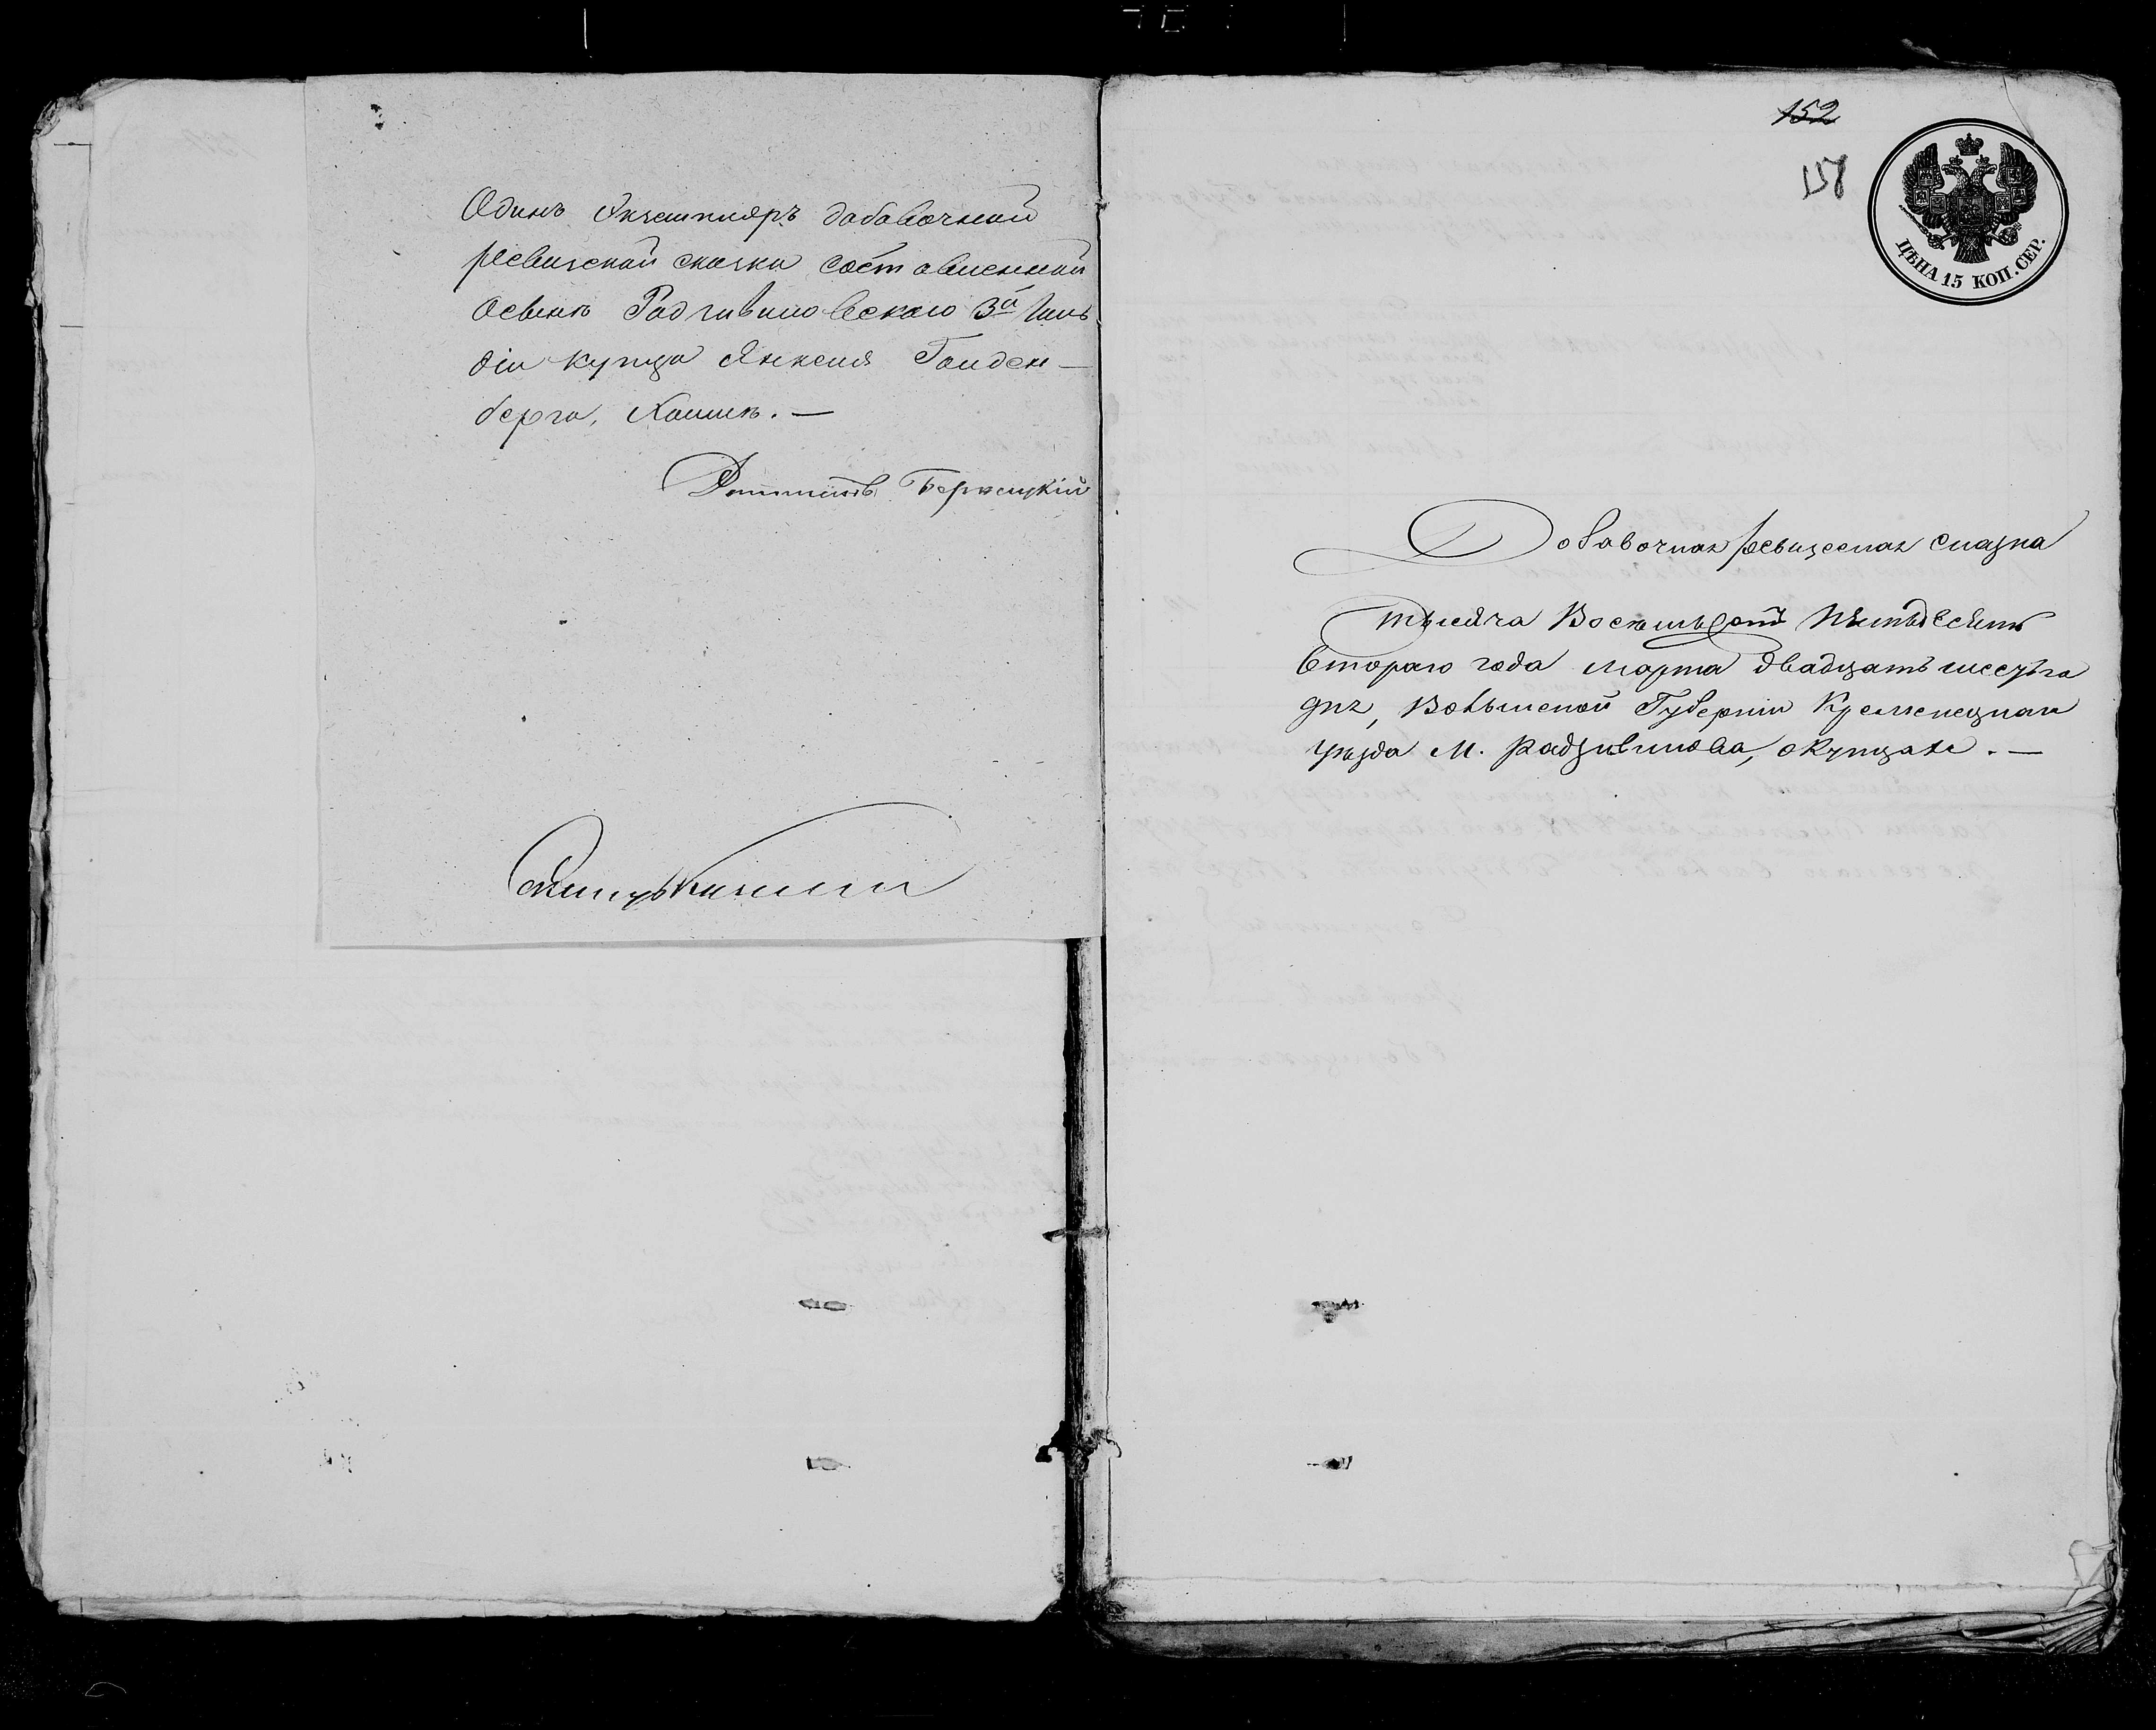 Одинъ Экземпляръ добавочной
ревизской сказки составленной
Радзивиловскаго 3й Гиль
діи купца Янкеля Гольден—
берга,
152
158
ЦѢНА 15 КОП. СЕР.
Добавочная ревизская сказка
тысяча Восемьсотъ Пятьдесятъ
втораго года марта двадцать шестаго
дня, Волынской Губерніи Кременецкаго
уѣзда М. Радзивилова, о купцахъ. —